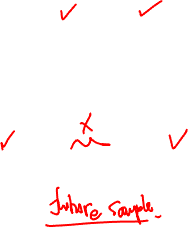 x
future sample.